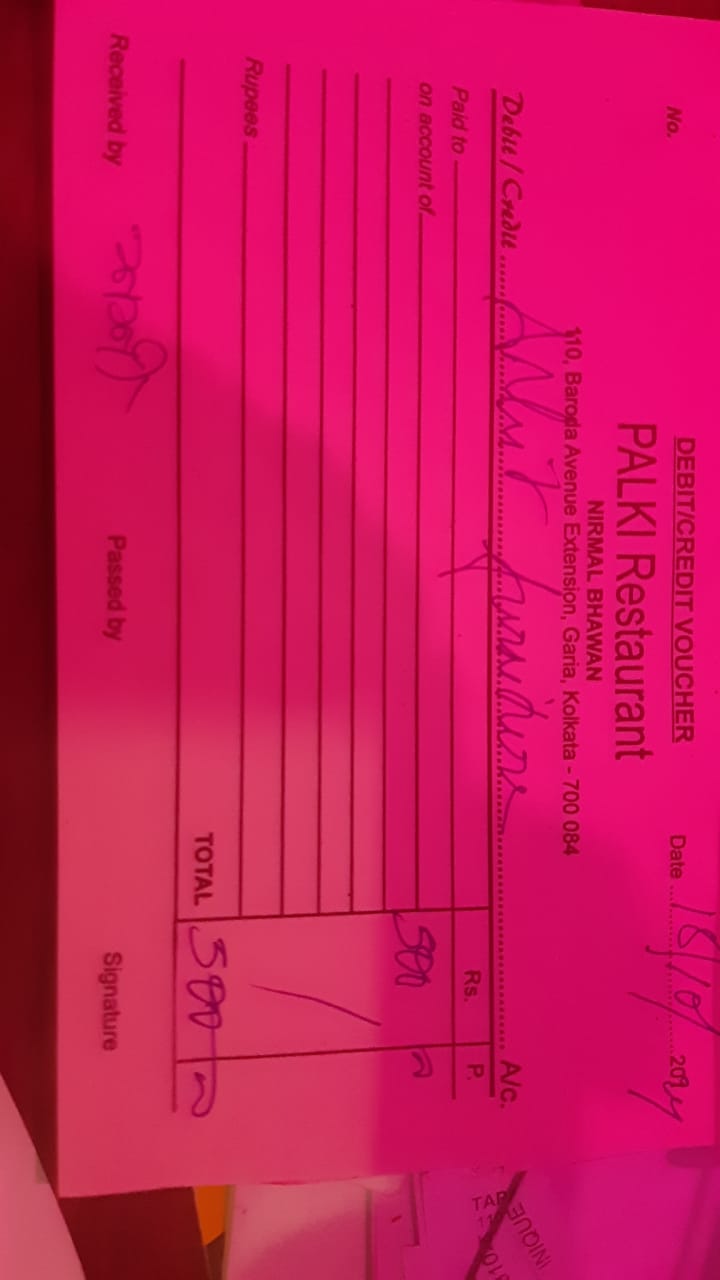 DEBIT/CREDIT VOUCHER
No.
Date 18/10/ 2024
PALKI Restaurant
NIRMAL BHAWAN
110, Baroda Avenue Extension, Garia, Kolkata - 700 084
Debit / Credit A/c.
Paid to Rs. P.
on account of 500
Rupees
TOTAL 500
Received by Passed by Signature
TAP
INIQUE